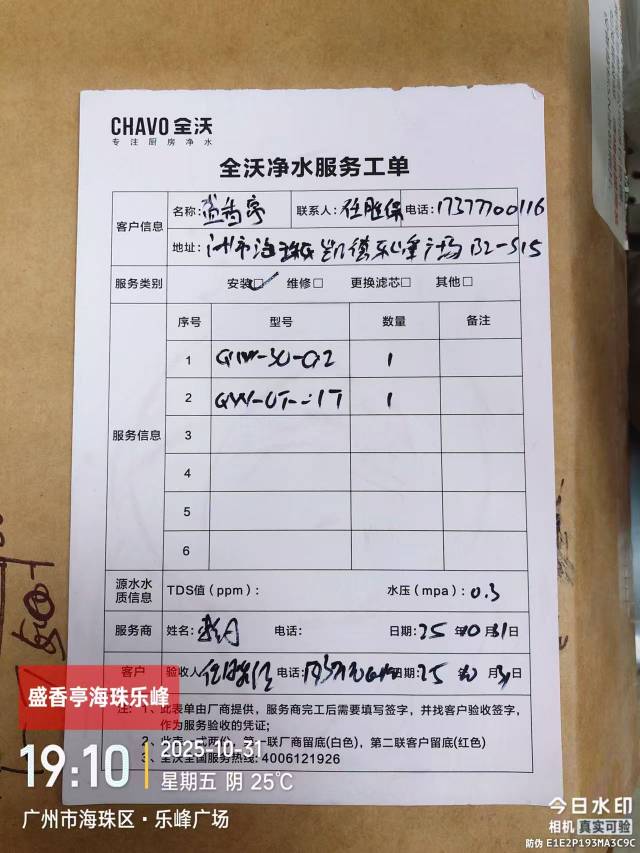 CHAVO 全沃
专注厨房净水
全沃净水服务工单
客户信息
名称: 盛香亭 联系人: 任胜保 电话: 17377700116
地址: 广州市海珠区凯德乐峰广场B2-S15
服务类别 安装☑ 维修□ 更换滤芯□ 其他□
服务信息
序号 型号 数量 备注
1 1
2 1
3
4
5
6
源水水质信息 TDS值(ppm): 水压(mpa): 0.3
服务商 姓名: 电话: 日期: 25 年 10 月 31 日
客户 验收人 任胜保 电话: 日期: 25 年 10 月 31 日
注: 1、此表单由厂商提供,服务商完工后需要填写签字,并找客户验收签字,
作为服务验收的凭证;
2、此表一式两份,第一联厂商留底(白色),第二联客户留底(红色)
3、全沃全国服务热线: 4006121926
盛香亭海珠乐峰
19:10
2025-10-31
星期五 阴 25℃
广州市海珠区·乐峰广场
今日水印
相机 真实可验
防伪 E1E2P193MA3C9C